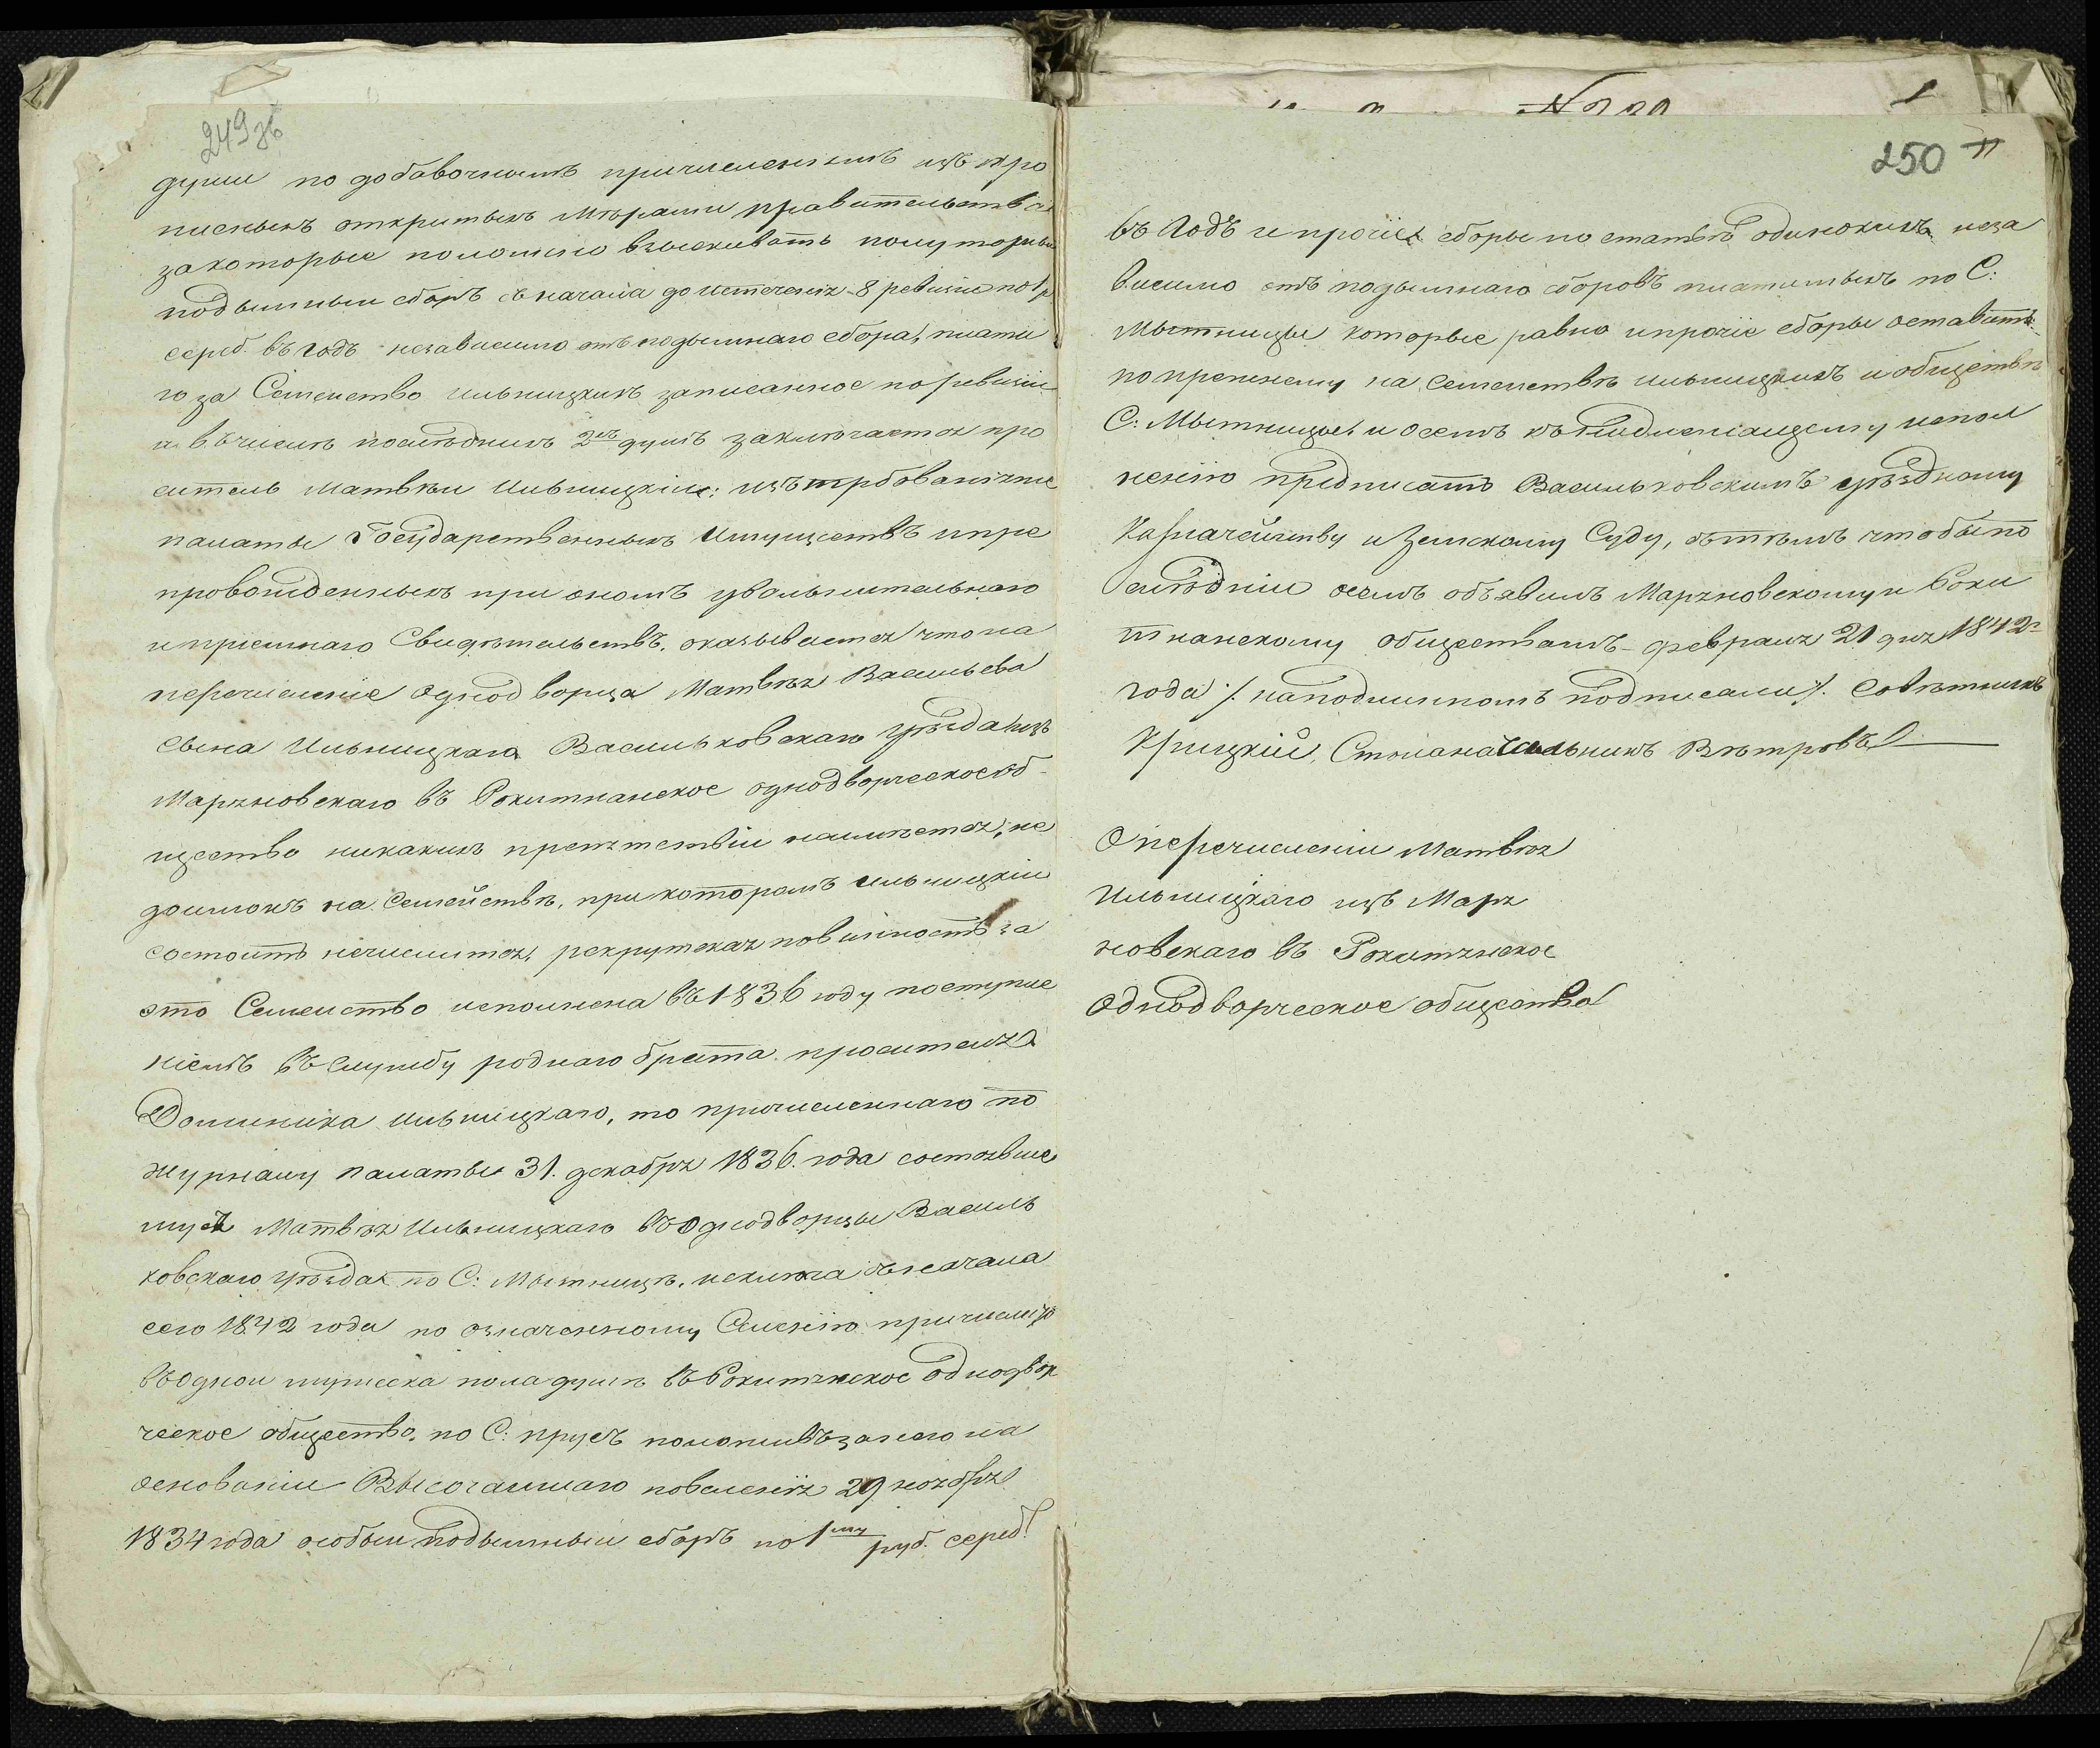 249 зв
души по добавочнымъ причисленіямъ изъ про
писныхъ открытыхъ мѣрами правительства
за которые положено взыскивать полуторный
подымный сборъ съ начала до истеченія 8 ревизіи по 1 р
сереб. въ годъ независимо отъ подымнаго сбора, плати
го за Семейство Ильницкихъ записанное по ревизіи
и въ числѣ послѣднихъ 2хъ душъ заключается про
ситель Матвѣй Ильницкій: изъ требованія же
палаты Государственныхъ Имуществъ и пре
провожденныхъ при ономъ увольнительнаго
и пріемнаго Свидѣтельствъ, оказывается что на
перечисленіе Однодворца Матвѣя Васильева
сына Ильницкаго Васильковскаго уѣзда изъ
Маряновскаго въ Рокитнянское однодворческое об-
щество никакихъ препятствій неимѣется, не
доимокъ на Семействѣ, при которомъ Ильницкій
состоитъ нечислится, рекрутская повинность за
это Семейство исполнена въ 1836 году поступле
ніемъ въ службу роднаго брата просителя
Доминика Ильницкаго, то причисленнаго по
журналу палаты 31. декабря 1836. года состоявше
муся Матвѣя Ильницкаго въ Однодворцы Василь
ковскаго уѣзда по С: Мытницѣ, исключа съ начала
сего 1842 года по означенному Селенію причислить
въ одной мужеска пола душѣ въ Рокитянское однодвор
ческое общество, по С: прусъ положивъ за него на
основаніи Высочайшаго повеленія 29 ноября
1834 года особый подымный сборъ по 1му руб. сереб.
№
250
въ годъ и прочіе сборы по статьѣ одинокихъ неза
висимо отъ подымнаго сборовъ платимыхъ по С:
Мытницы которые равно и прочіе сборы оставить
по прежнему на Семействѣ Ильницкихъ и обществѣ
С: Мытницы, и о семъ къ надлежащему испол
ненію предписать Васильковскимъ уѣздному
Казначейству и Земскому Суду, съ тѣмъ чтобы по
слѣдній о семъ объявилъ Маряновскому и Роки
тнанскому обществамъ – февраля 21 дня 1842го
года ⁒ на подлинномъ подписали ⁒. Совѣтникъ
Крицкій, Столоначальникъ Вѣтровъ
О перечисленіи Матвѣя
Ильницкаго изъ Маря
новскаго въ Рокитянское
Однодворческое общество